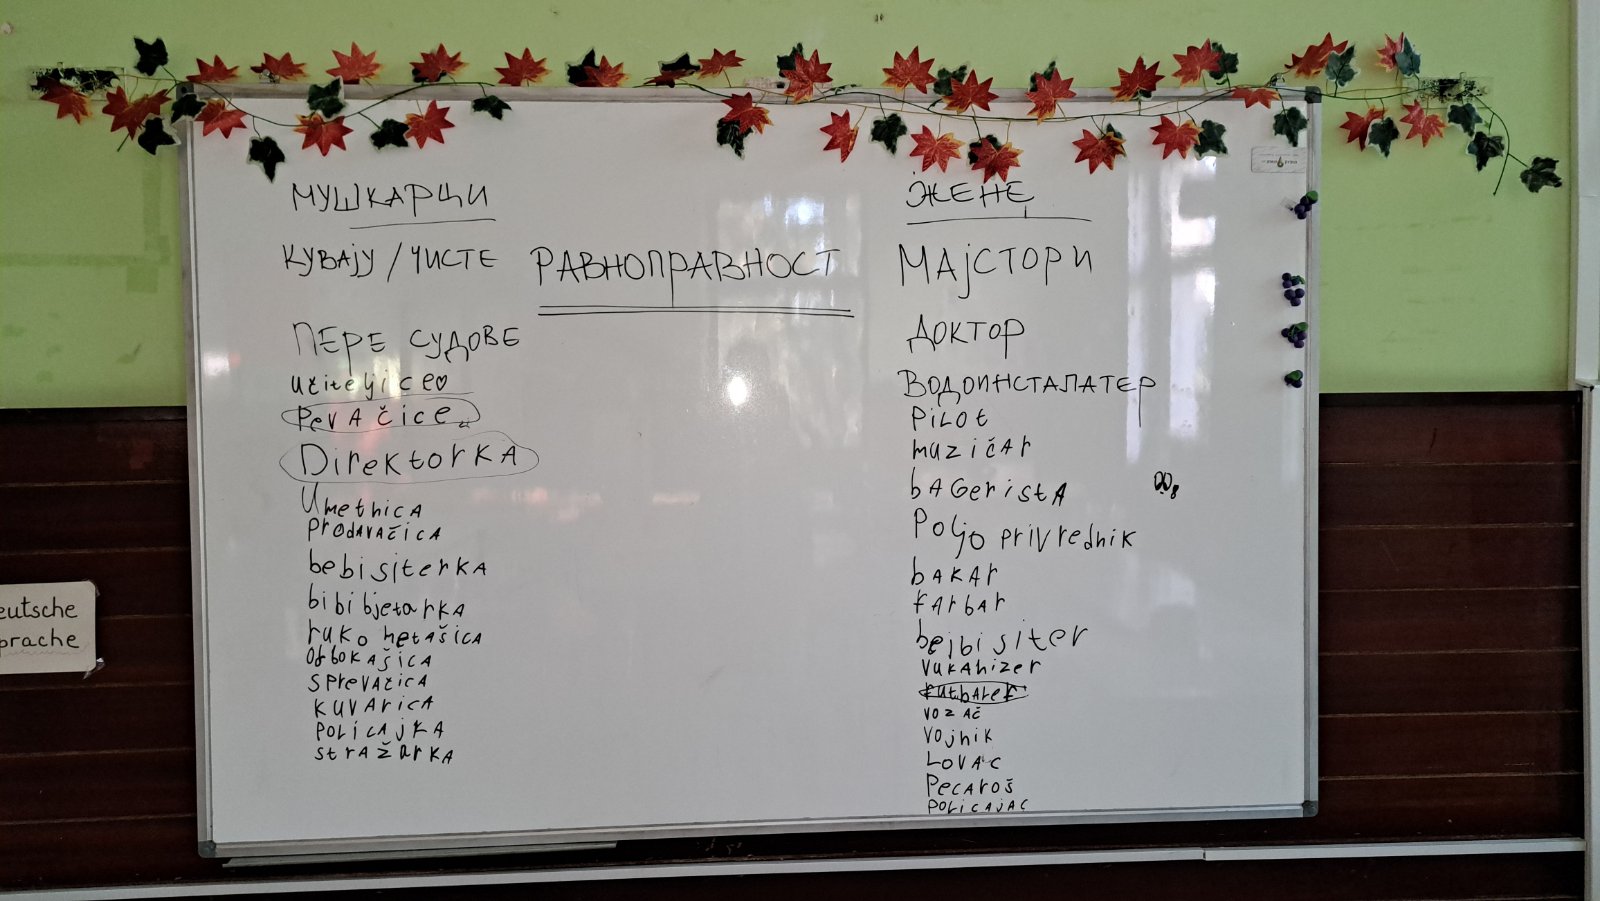 МУШКАРЦИ
КУВАЈУ / ЧИСТЕ
ПЕРЕ СУДОВЕ
učiteljice
PevAčice
DirektorKA
UmetnicA
ProdAVAčicA
bebisiterKA
bibibjetarKA
ruko metAšicA
odbokAšicA
sprevAčicA
KUVAricA
POLICAJKA
strAžarKA
РАВНОПРАВНОСТ
ЖЕНЕ
МАЈСТОРИ
ДОКТОР
ВОДОИНСТАЛАТЕР
PiLOt
muzičAr
bAGeristA
Poljo privrednik
bAKAr
fArbAr
bejbisiter
VuKAnizer
VOZAČ
Vojnik
LOVAC
PecAroš
POLICAJAC
eutsche
prache